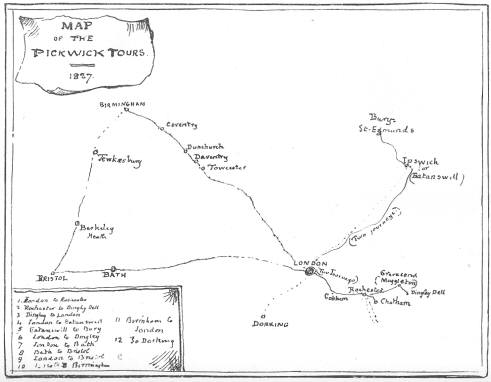 MAP
OF THE
PICKWICK TOURS.
1827.
BIRMINGHAM
Coventry
Dunchurch
Daventry
Towcester
Tewkesbury
Berkeley
Heath
BRISTOL
BATH
Bury
St. Edmunds
Ipswich
(or
Eatanswill)
(Two journeys)
LONDON
(Two Journeys)
Gravesend
Muggleton
Rochester
Dingley Dell
Cobham
Chatham
DORKING
1 London to Rochester
2 Rochester to Dingley Dell
3 Dingley to London
4 London to Eatanswill
5 Eatanswill to Bury
6 London to Dingley
7 London to Bath
8 Bath to Bristol
9 London to Bristol
10 Bristol to Birmingham
11 Birmingham to
London
12 To Dorking